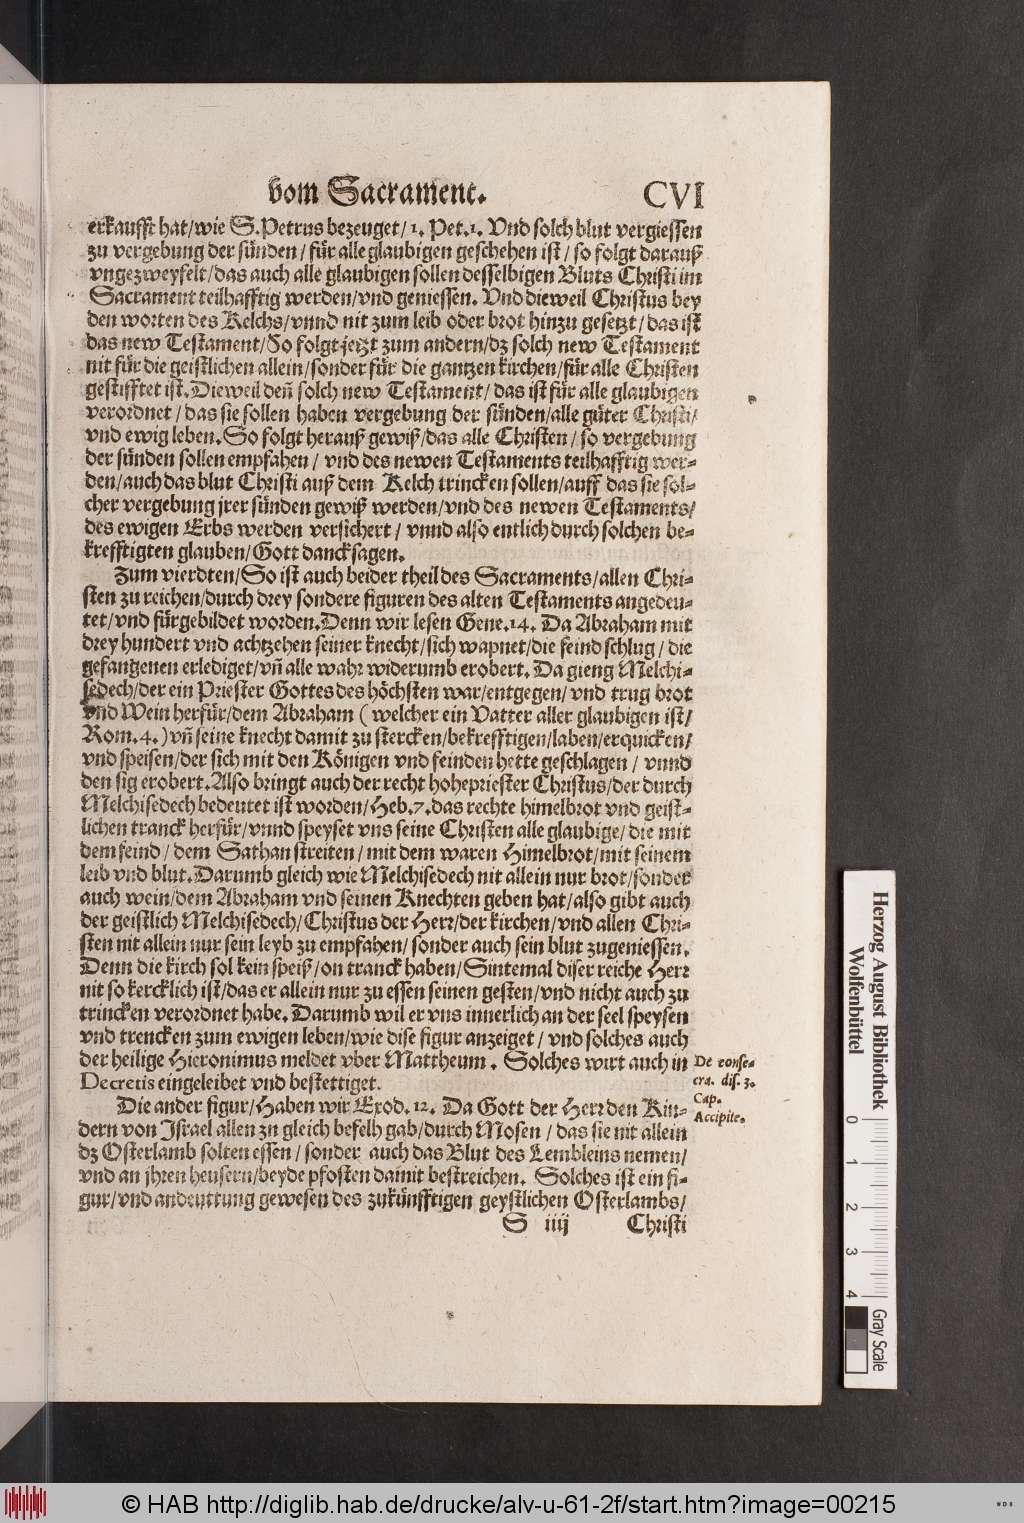 vom Sacrament. CVI
erkaufft hat/wie S.Petrus bezeuget/1. Pet.1. Vnd solch blut vergiessen
zu vergebung der sünden/für alle glaubigen geschehen ist/so folgt darauß
vngezweyfelt/das auch alle glaubigen sollen desselbigen Bluts Christi im
Sacrament teilhafftig werden/vnd geniessen. Vnd dieweil Christus bey
den worten des Kelchs/vnnd nit zum leib oder brot hinzu gesetzt/das ist
das new Testament/So folgt jetzt zum andern/dz solch new Testament
nit für die geistlichen allein/sonder für die gantzen kirchen/für alle Christen
gestifftet ist.Dieweil deñ solch new Testament/das ist für alle glaubigen
verordnet/das sie sollen haben vergebung der sünden/alle güter Christi/
vnd ewig leben.So folgt herauß gewiß/das alle Christen/so vergebung
der sünden sollen empfahen/vnd des newen Testaments teilhafftig wer-
den/auch das blut Christi auß dem Kelch trincken sollen/auff das sie sol-
cher vergebung jrer sünden gewiß werden/vnd des newen Testaments/
des ewigen Erbs werden versichert/vnnd also entlich durch solchen be-
krefftigten glauben/Gott dancksagen.
Zum vierdten/So ist auch beider theil des Sacraments/allen Chri-
sten zu reichen/durch drey sondere figuren des alten Testaments angedeu-
tet/vnd fürgebildet worden.Denn wir lesen Gene.14. Da Abraham mit
drey hundert vnd achtzehen seiner knecht/sich wapnet/die feind schlug/die
gefangenen erlediget/vñ alle wahr widerumb erobert.Da gieng Melchi-
sedech/der ein Priester Gottes des höchsten war/entgegen/vnd trug brot
vnd Wein herfür/dem Abraham (welcher ein Vatter aller glaubigen ist/
Rom.4.)vñ seine knecht damit zu stercken/bekrefftigen/laben/erquicken/
vnd speisen/der sich mit den Königen vnd feinden hette geschlagen/vnnd
den sig erobert.Also bringt auch der recht hohepriester Christus/der durch
Melchisedech bedeutet ist worden/Heb.7.das rechte himelbrot vnd geist-
lichen tranck herfür/vnnd speyset vns seine Christen alle glaubige/die mit
dem feind/dem Sathan streiten/mit dem waren Himelbrot/mit seinem
leib vnd blut.Darumb gleich wie Melchisedech nit allein nur brot/sonder
auch wein/dem Abraham vnd seinen Knechten geben hat/also gibt auch
der geistlich Melchisedech/Christus der Herr/der kirchen/vnd allen Chri-
sten nit allein nur sein leyb zu empfahen/sonder auch sein blut zugeniessen.
Denn die kirch sol kein speiß/on tranck haben/Sintemal diser reiche Herr
nit so kercklich ist/das er allein nur zu essen seinen gesten/vnd nicht auch zu
trincken verordnet habe.Darumb wil er vns innerlich an der seel speysen
vnd trencken zum ewigen leben/wie dise figur anzeiget/vnd solches auch
der heilige Hieronimus meldet vber Mattheum. Solches wirt auch in
Decretis eingeleibet vnd bestettiget.
De conse-
cra. dis. 3.
Cap.
Accipite.
Die ander figur/Haben wir Exod.12. Da Gott der Herr den Kin-
dern von Israel allen zu gleich befelh gab/durch Mosen/das sie nit allein
dz Osterlamb solten essen/sonder auch das Blut des Lembleins nemen/
vnd an jhren heusern/beyde pfosten damit bestreichen. Solches ist ein fi-
gur/vnd andeuttung gewesen des zukünfftigen geystlichen Osterlambs/
S iiij Christi
Herzog August Bibliothek
Wolfenbüttel
0 1 2 3 4
Gray Scale
© HAB http://diglib.hab.de/drucke/alv-u-61-2f/start.htm?image=00215